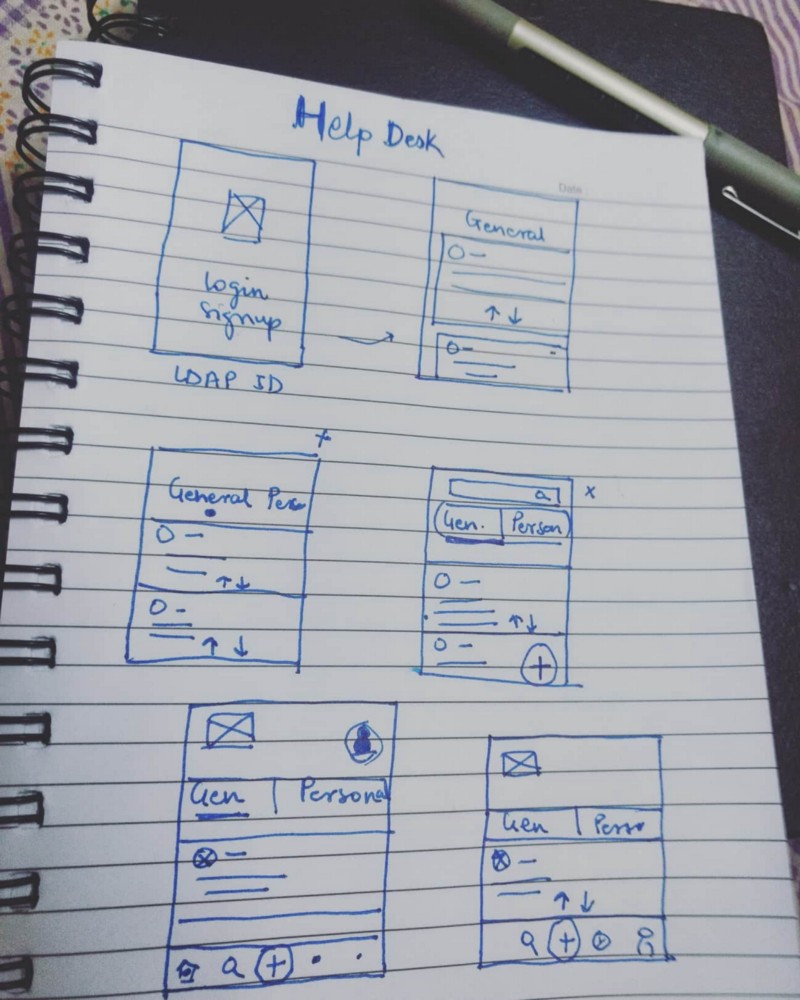 Help Desk
Date
Login
Signup
LDAP ID
General
General Perso
Gen. Person
Gen Personal
Gen Perso